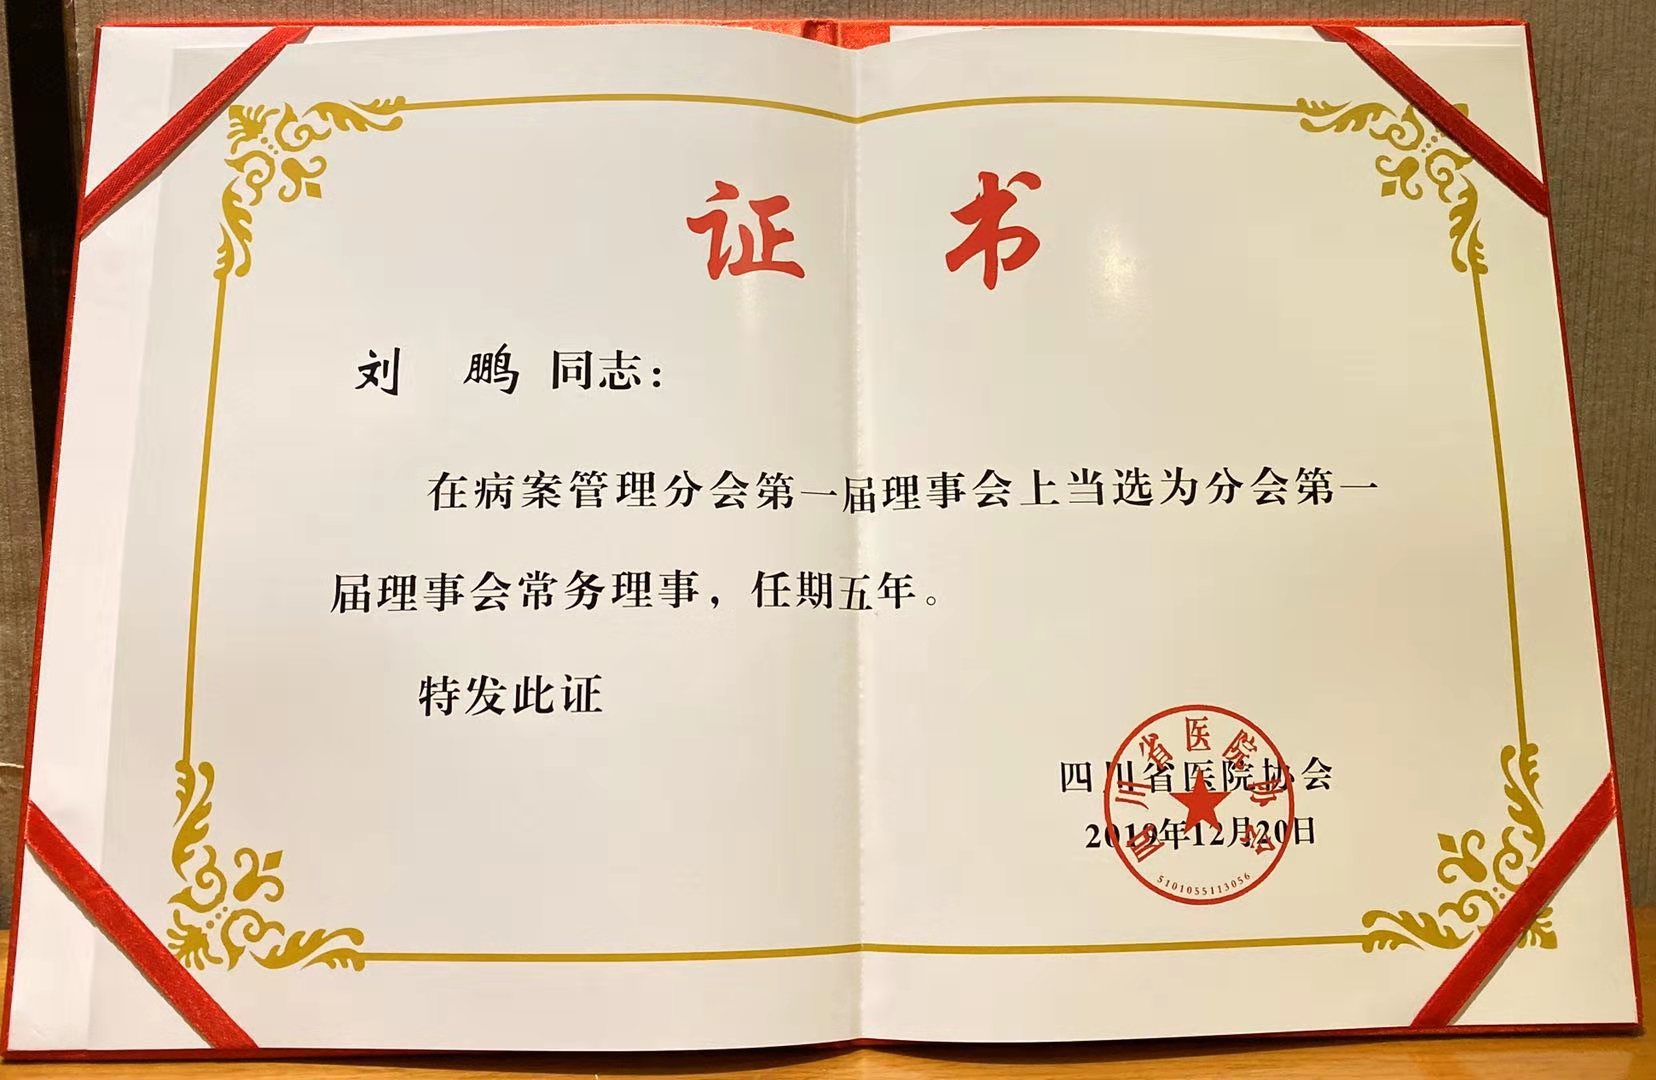 证书
刘 鹏 同志：
在病案管理分会第一届理事会上当选为分会第一
届理事会常务理事，任期五年。
特发此证
四川省医院协会
2019年12月20日
四川省医院协会
5101055113056